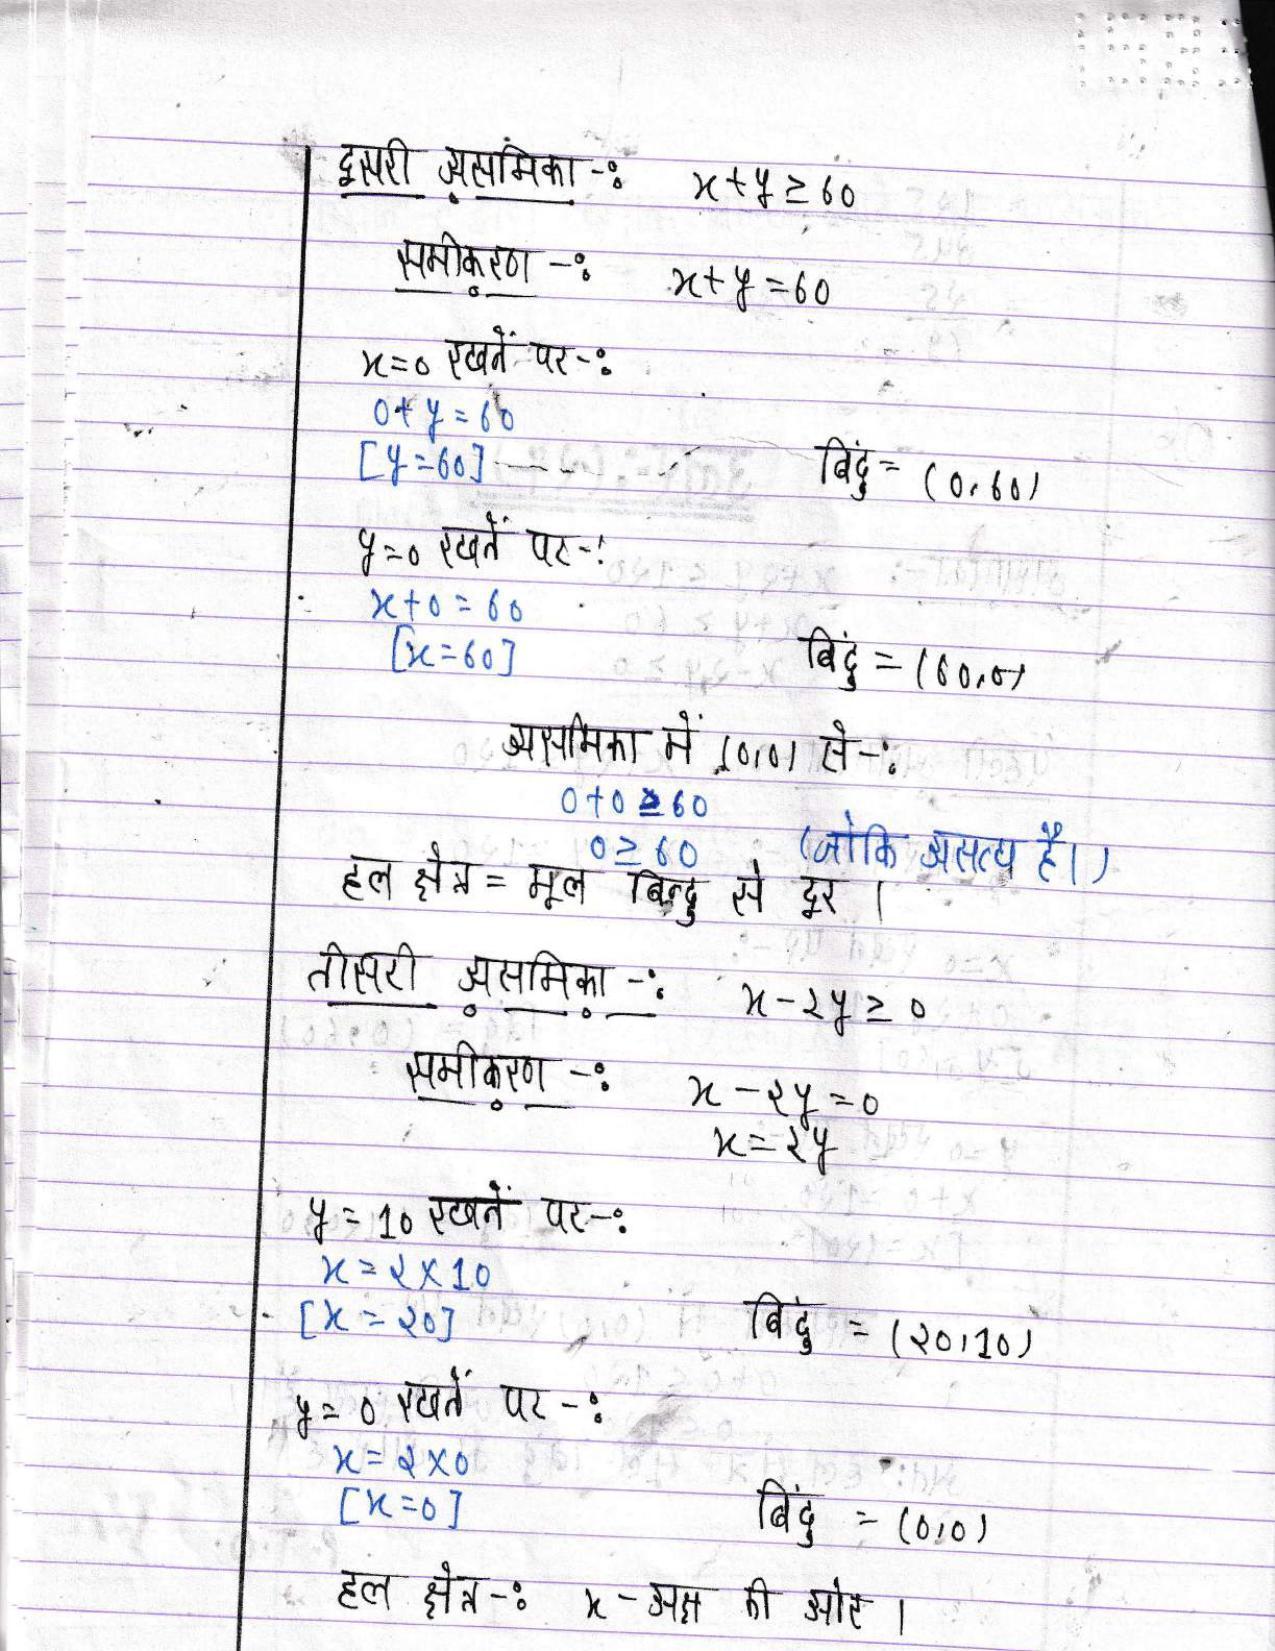 दूसरी असमिका -: x+y ≥ 60
समीकरण -: x+y = 60
x=0 रखनें पर -:
0+y = 60
[y=60] बिंदु = (0,60)
y=0 रखनें पर -:
x+0 = 60
[x=60] बिंदु = (60,0)
असमिका में (0,0) से -:
0+0 ≥ 60
0 ≥ 60 (जोकि असत्य है।)
हल क्षेत्र = मूल बिन्दु से दूर ।
तीसरी असमिका -: x - 2y ≥ 0
समीकरण -: x - 2y = 0
x = 2y
y = 10 रखनें पर -:
x = 2 x 10
[x = 20] बिंदु = (20,10)
y = 0 रखनें पर -:
x = 2 x 0
[x=0] बिंदु = (0,0)
हल क्षेत्र -: x - अक्ष की ओर ।